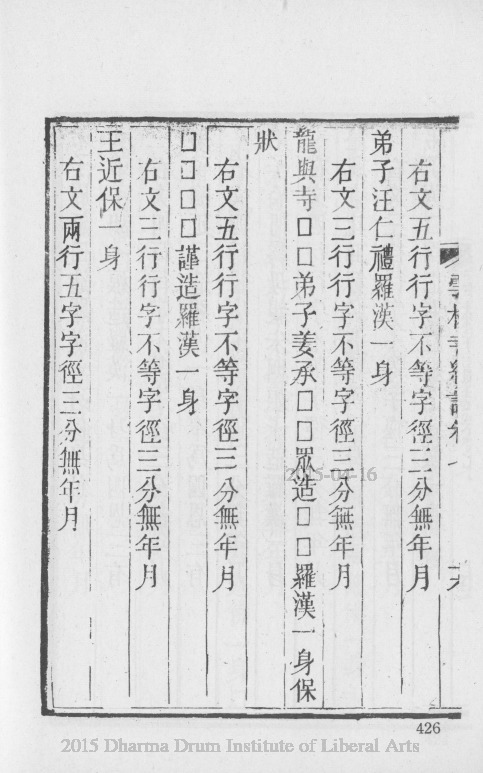 右文五行行字不等字徑三分無年月
弟子汪仁禮羅漢一身
右文三行行字不等字徑三分無年月
龍與寺□□弟子姜承□□眾造□□羅漢一身保
狀
右文五行字不等字徑三分無年月
□□□□謹造羅漢一身
右文三行行字不等字徑三分無年月
王近保一身
右文兩行五字字徑三分無年月
426
2015-04-16
2015 Dharma Drum Institute of Liberal Arts